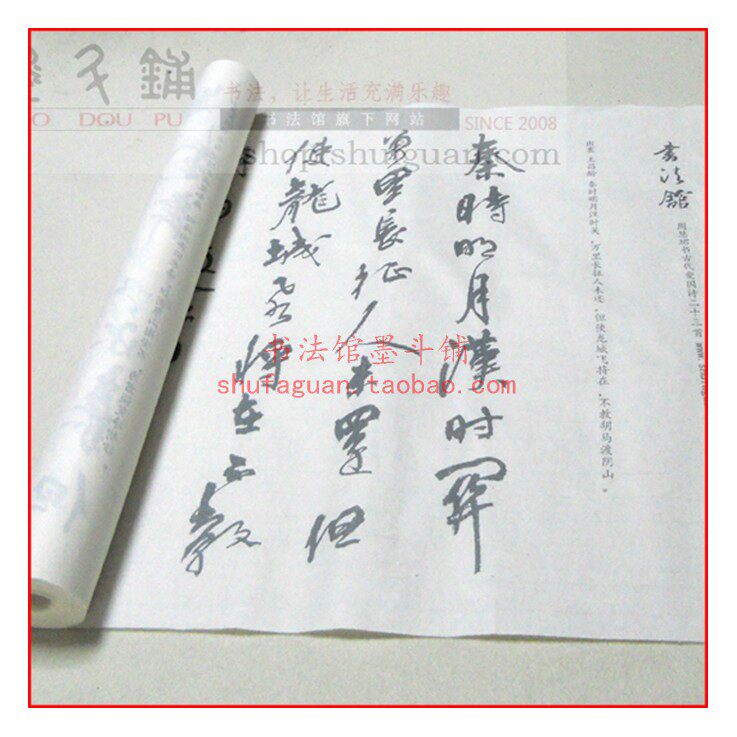 墨斗鋪
O DOU PU
书法，让生活充满乐趣
书法馆旗下网站
SINCE 2008
shop.shufaguan.com
書法館
出塞 王昌龄 秦时明月汉时关，万里长征人未还。但使龙城飞将在，不教胡马渡阴山。
秦時明月漢时関
萬里長征人未還 但
使龍城飛将在不教
书法馆墨斗铺
shufaguan.taobao.com